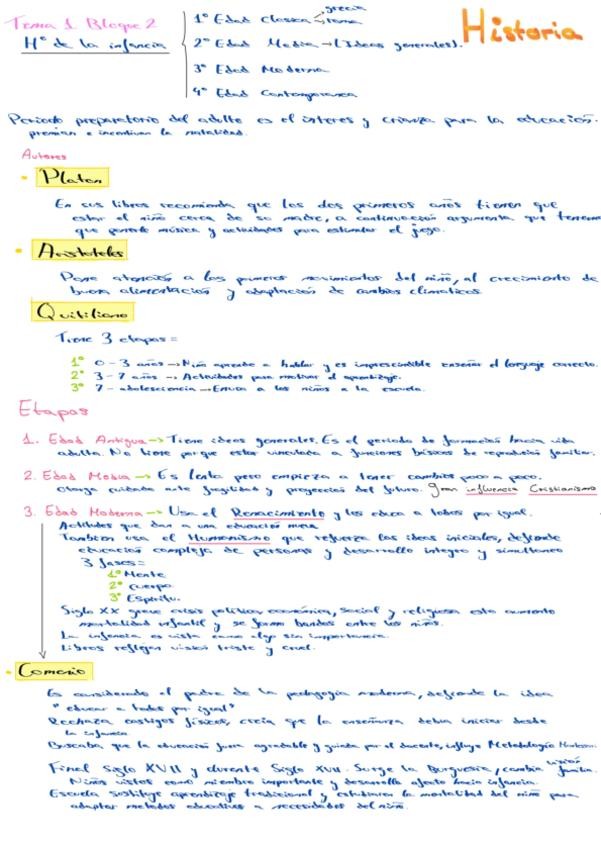 Tema 1 Bloque 2
Hº de la infancia
1º Edad Clasica → grecia → roma
2º Edad Media → (Ideas generales).
3º Edad Moderna
4º Edad Contemporanea
Historia
Periodo preparatorio del adulto es el interes y crianza para la educación.
premian e incentivan la natalidad.
Autores
• Platon
En sus libros recomienda que los dos primeros años tienen que
estar el niño cerca de su madre, a continuación argumenta que tenemos
que ponerle música y actividades para estimular el juego.
• Aristoteles
Pone atención a los primeros movimientos del niño, al crecimiento de
buena alimentación y adaptación de cambios climaticos
Quitiliano
Tiene 3 etapas=
1º 0-3 años → Niñ aprende a hablar y es imprescindible enseñar el lenguaje correcto.
2º 3-7 años → Actividades para motivar el aprendizaje.
3º 7-adolescencia → Envia a los niños a la escuela.
Etapas
1. Edad Antigua → Tiene ideas generales. Es el periodo de formación hacia vida
adulta. No tiene porque estar vinculada a funciones básicas de reproducion familiar.
2. Edad Media → Es lenta pero empieza a tener cambios poco a poco.
Otorga cuidado ante fragilidad y proyección del futuro. gran influencia Cristianismo
3. Edad Moderna → Usa el Renacimiento y los educa a todos por igual.
Actitudes que dan a una educación mera
Tambien usa el Humanismo que refuerza las ideas iniciales, defiende
educación compleja de personas y desarrollo integro y simultaneo
3 fases=
1º Mente
2º Cuerpo
3º Espiritu.
Siglo XX grave crisis politica, económica, social y religiosa esto aumento
mortalidad infantil y se formo bandos entre los niños.
La infancia es vista como algo sin importancia.
Libros reflejan vision triste y cruel.
• Comenio
Es considerado el padre de la pedagogía moderna, defiende la idea
"educar a todos por igual"
Rechaza castigos físicos, creía que la enseñanza debia iniciar desde
la infancia
Buscaba que la educación fuera agradable y guiada por el docente, influye Metodología
Final Siglo XVII y durante Siglo XVII. Surge la Burguesia, cambia vision familia.
Niños vistos como miembro importante y desarrolla afecto hacia infancia.
Escuela sustituye aprendizaje tradicional y estudiaron la mortalidad del niño para
adaptar metodos educativos a necesidades del niño.